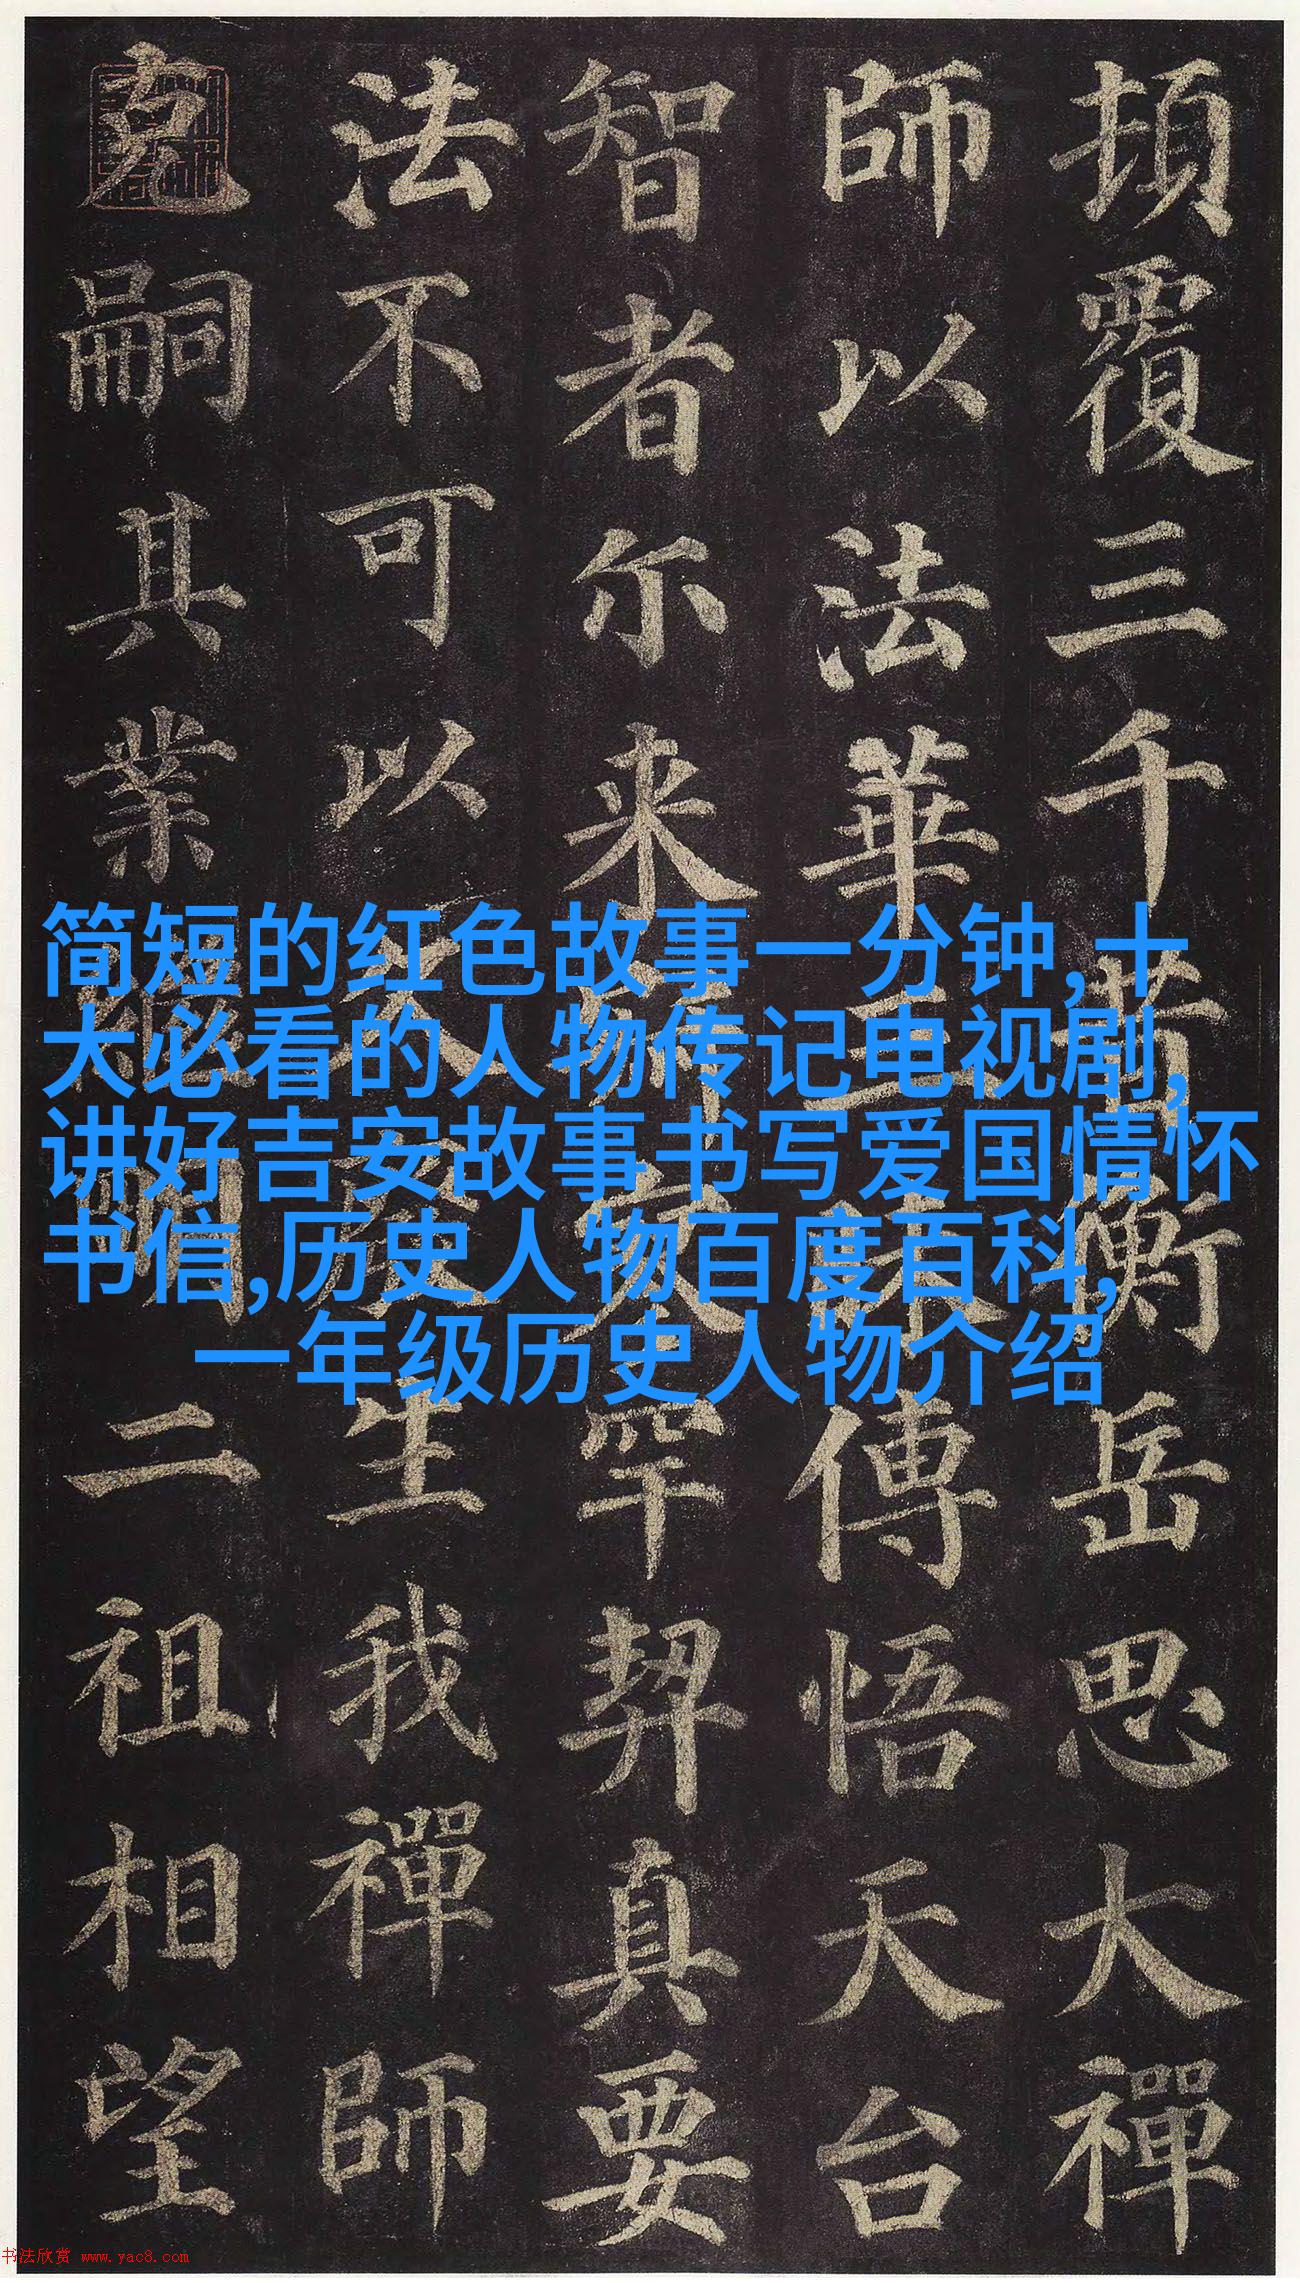 頓覆三千昔衡岳思大禪
師以法華三昧傳悟天台
智者尒来寂寥罕契真要
法不可以久廢生我禪師
克嗣其業継明二祖相望
简短的红色故事一分钟,十
大必看的人物传记电视剧,
讲好吉安故事书写爱国情怀
书信,历史人物百度百科,
一年级历史人物介绍
书法欣赏 www.yac8.com